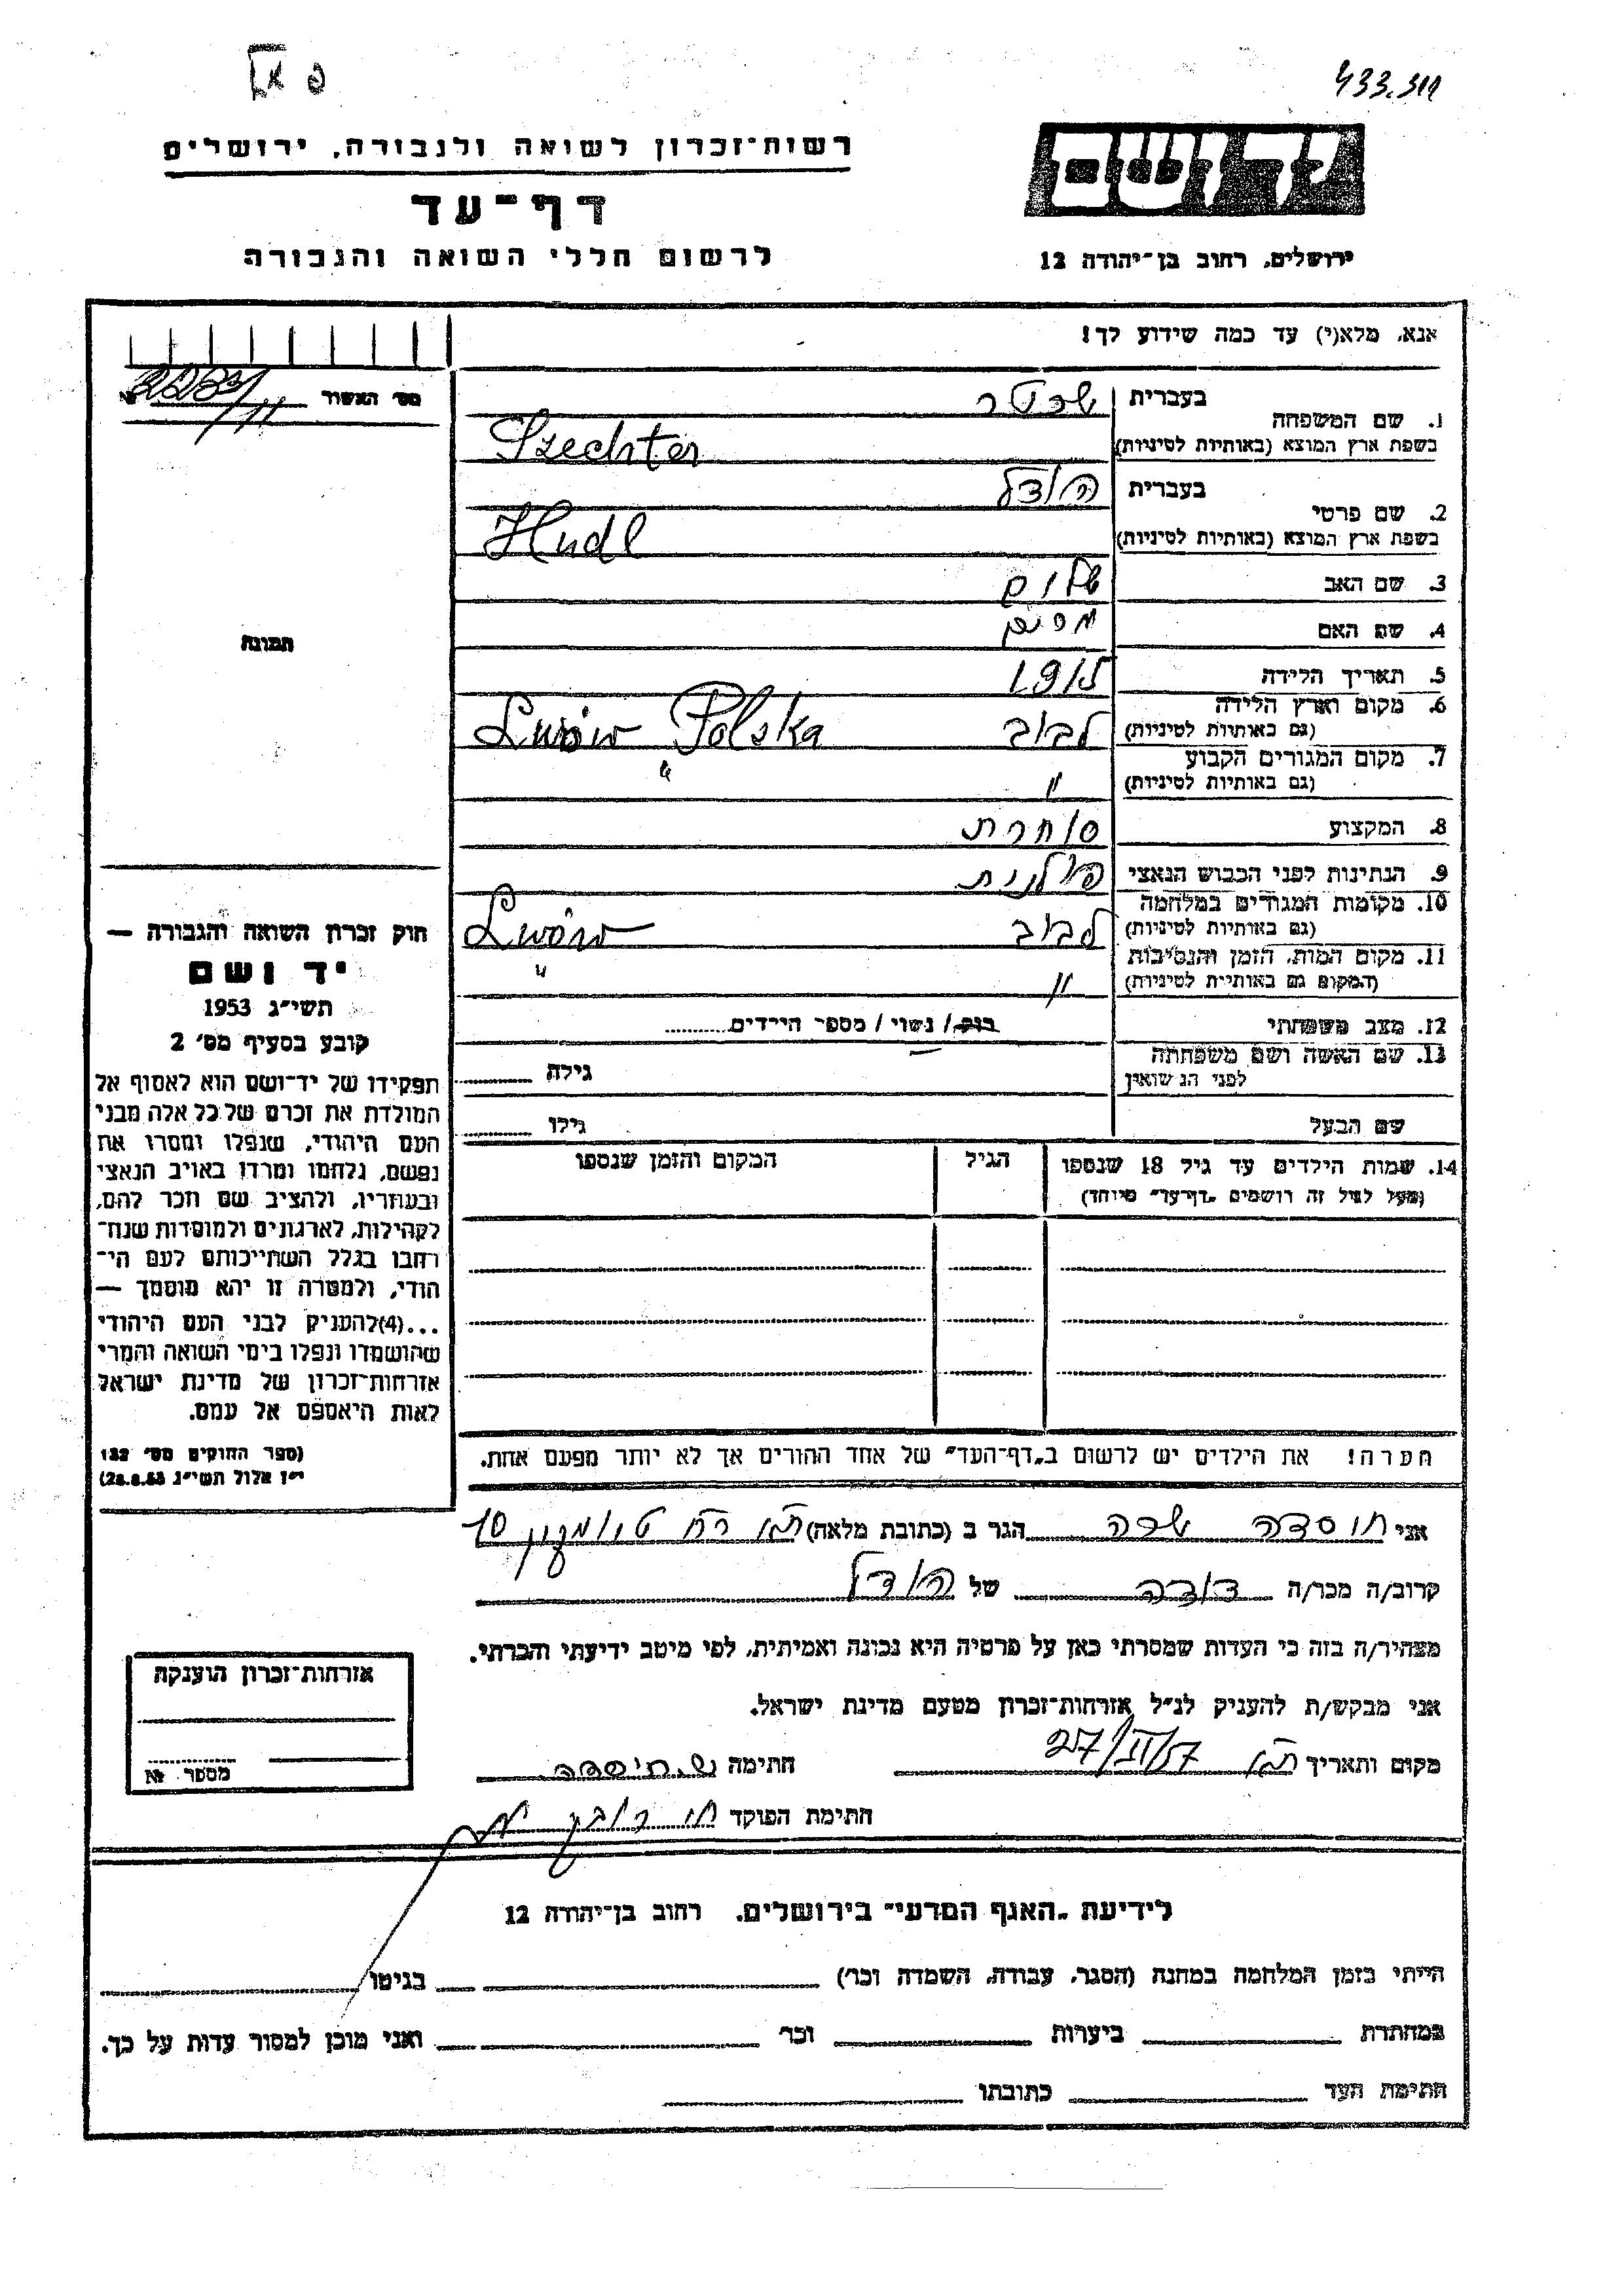 433.
רשות־זכרון לשואה ולגבורה, ירושלים
דף־עד
לרשום חללי השואה והגבורה
יד ושם
ירושלים, רחוב בן־יהודה 12
אנא, מלא(י) עד כמה שידוע לך!
מס׳ האשור
1. שם המשפחה
בעברית שכטר
בשפת ארץ המוצא (באותיות לטיניות) Szechter
2. שם פרטי
בעברית הודל
בשפת ארץ המוצא (באותיות לטיניות) Hudl
3. שם האב שלום
4. שם האם מרים
5. תאריך הלידה
6. מקום וארץ הלידה
(גם באותיות לטיניות) לבוב Lwów Polska
7. מקום המגורים הקבוע
(גם באותיות לטיניות) " "
8. המקצוע סוחרת
9. הנתינות לפני הכבוש הנאצי פולנית
10. מקומות המגורים במלחמה
(גם באותיות לטיניות) לבוב Lwów
11. מקום המות, הזמן והנסיבות
(המקום גם באותיות לטיניות) " "
12. מצב משפחתי רווק/ נשוי / מספר הילדים
13. שם האשה ושם משפחתה
לפני הנשואין גילה
שם הבעל גילו
14. שמות הילדים עד גיל 18 שנספו
(מעל לגיל זה רושמים „דף־עד" מיוחד)
הגיל
המקום והזמן שנספו
הערה! את הילדים יש לרשום ב„דף־העד" של אחד ההורים אך לא יותר מפעם אחת.
תמונה
חוק זכרון השואה והגבורה —
יד ושם
תשי״ג 1953
קובע בסעיף מס׳ 2
תפקידו של יד־ושם הוא לאסוף אל
המולדת את זכרם של כל אלה מבני
העם היהודי, שנפלו ומסרו את
נפשם, נלחמו ומרדו באויב הנאצי
ובעוזריו, ולהציב שם וזכר להם,
לקהילות, לארגונים ולמוסדות שנח־
רבו בגלל השתייכותם לעם הי־
הודי, ולמטרה זו יהא מוסמך —
...(4)להעניק לבני העם היהודי
שהושמדו ונפלו בימי השואה והמרי
אזרחות־זכרון של מדינת ישראל
לאות היאספם אל עמם.
(ספר החוקים מס׳ 132
י״ז אלול תשי״ג 28.8.53)
אני חוסדה שרה הגר ב (כתובת מלאה) 10
קרוב/ה מכר/ה דודה של הודל
מצהיר/ה בזה כי העדות שמסרתי כאן על פרטיה היא נכונה ואמיתית, לפי מיטב ידיעתי והכרתי.
אני מבקש/ת להעניק לנ״ל אזרחות־זכרון מטעם מדינת ישראל.
מקום ותאריך ת״א 27/II/57 חתימה ש. חוסדה
חתימת הפוקד
אזרחות־זכרון הוענקה
מספר №
לידיעת „האגף המדעי" בירושלים, רחוב בן־יהודה 12
הייתי בזמן המלחמה במחנה (הסגר, עבודה, השמדה וכו׳) בגיטו
במחתרת ביערות וכו׳ ואני מוכן למסור עדות על כך.
חתימת העד כתובתו